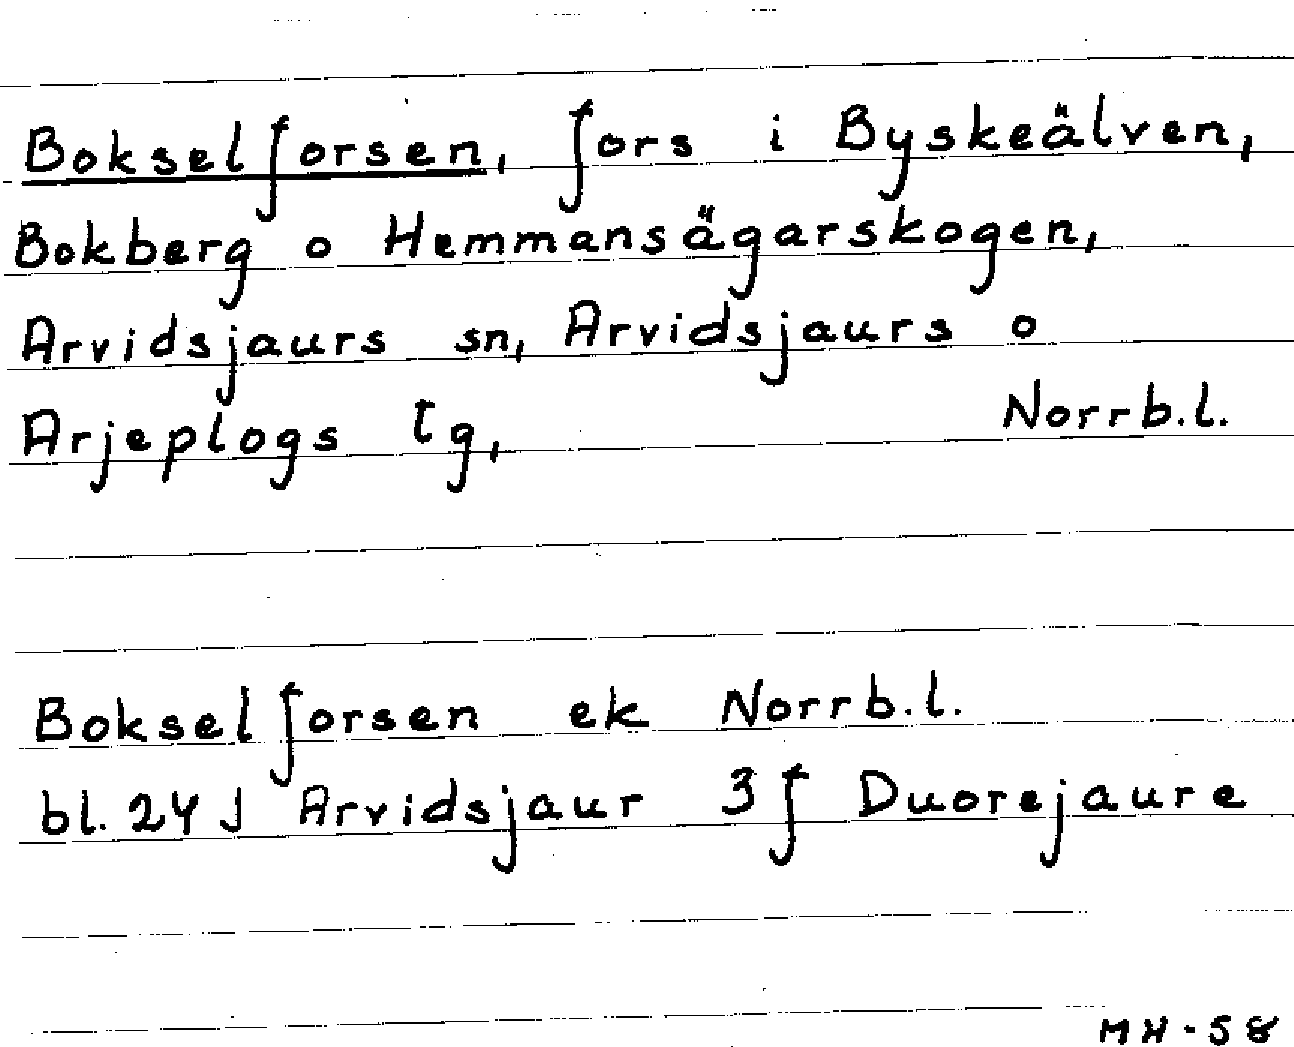 Bokselforsen, fors i Byskeälven,
Bokberg o Hemmansägarskogen,
Arvidsjaurs sn, Arvidsjaurs o
Arjeplogs lg, Norrb.l.
Bokselforsen ek Norrb.l.
bl. 24J Arvidsjaur 3f Duorejaure
MH-58